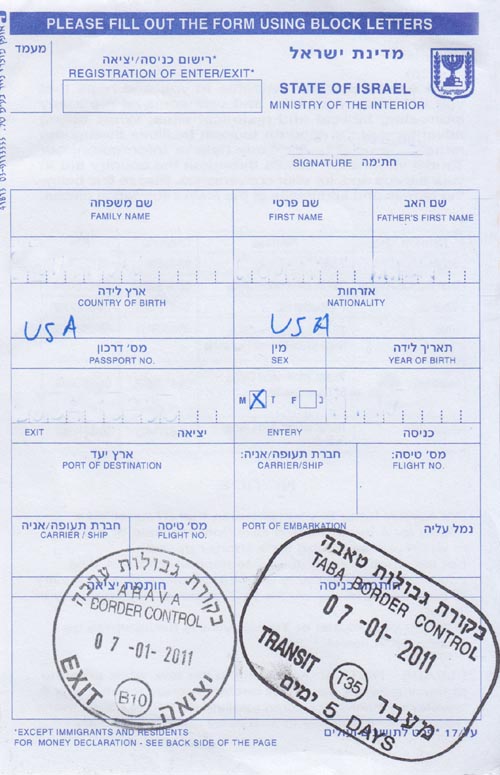 PLEASE FILL OUT THE FORM USING BLOCK LETTERS
מעמד
רישום כניסה/יציאה*
REGISTRATION OF ENTER/EXIT*
מדינת ישראל
STATE OF ISRAEL
MINISTRY OF THE INTERIOR
SIGNATURE חתימה
שם משפחה
FAMILY NAME
שם פרטי
FIRST NAME
שם האב
FATHER'S FIRST NAME
ארץ לידה
COUNTRY OF BIRTH
אזרחות
NATIONALITY
USA
USA
מס' דרכון
PASSPORT NO.
מין
SEX
תאריך לידה
YEAR OF BIRTH
M X T F נ
EXIT יציאה
ENTERY כניסה
ארץ יעד
PORT OF DESTINATION
חברת תעופה/אניה:
CARRIER/SHIP
מס' טיסה:
FLIGHT NO.
חברת תעופה/אניה
CARRIER / SHIP
מס' טיסה
FLIGHT NO.
PORT OF EMBARKATION נמל עליה
חותמת יציאה
חותמת כניסה
בקורת גבולות ערבה
ARAVA
BORDER CONTROL
07-01-2011
EXIT B10 יציאה
בקורת גבולות טאבה
TABA BORDER CONTROL
07-01-2011
TRANSIT T35 מעבר
5 DAYS ימים
*EXCEPT IMMIGRANTS AND RESIDENTS
FOR MONEY DECLARATION - SEE BACK SIDE OF THE PAGE